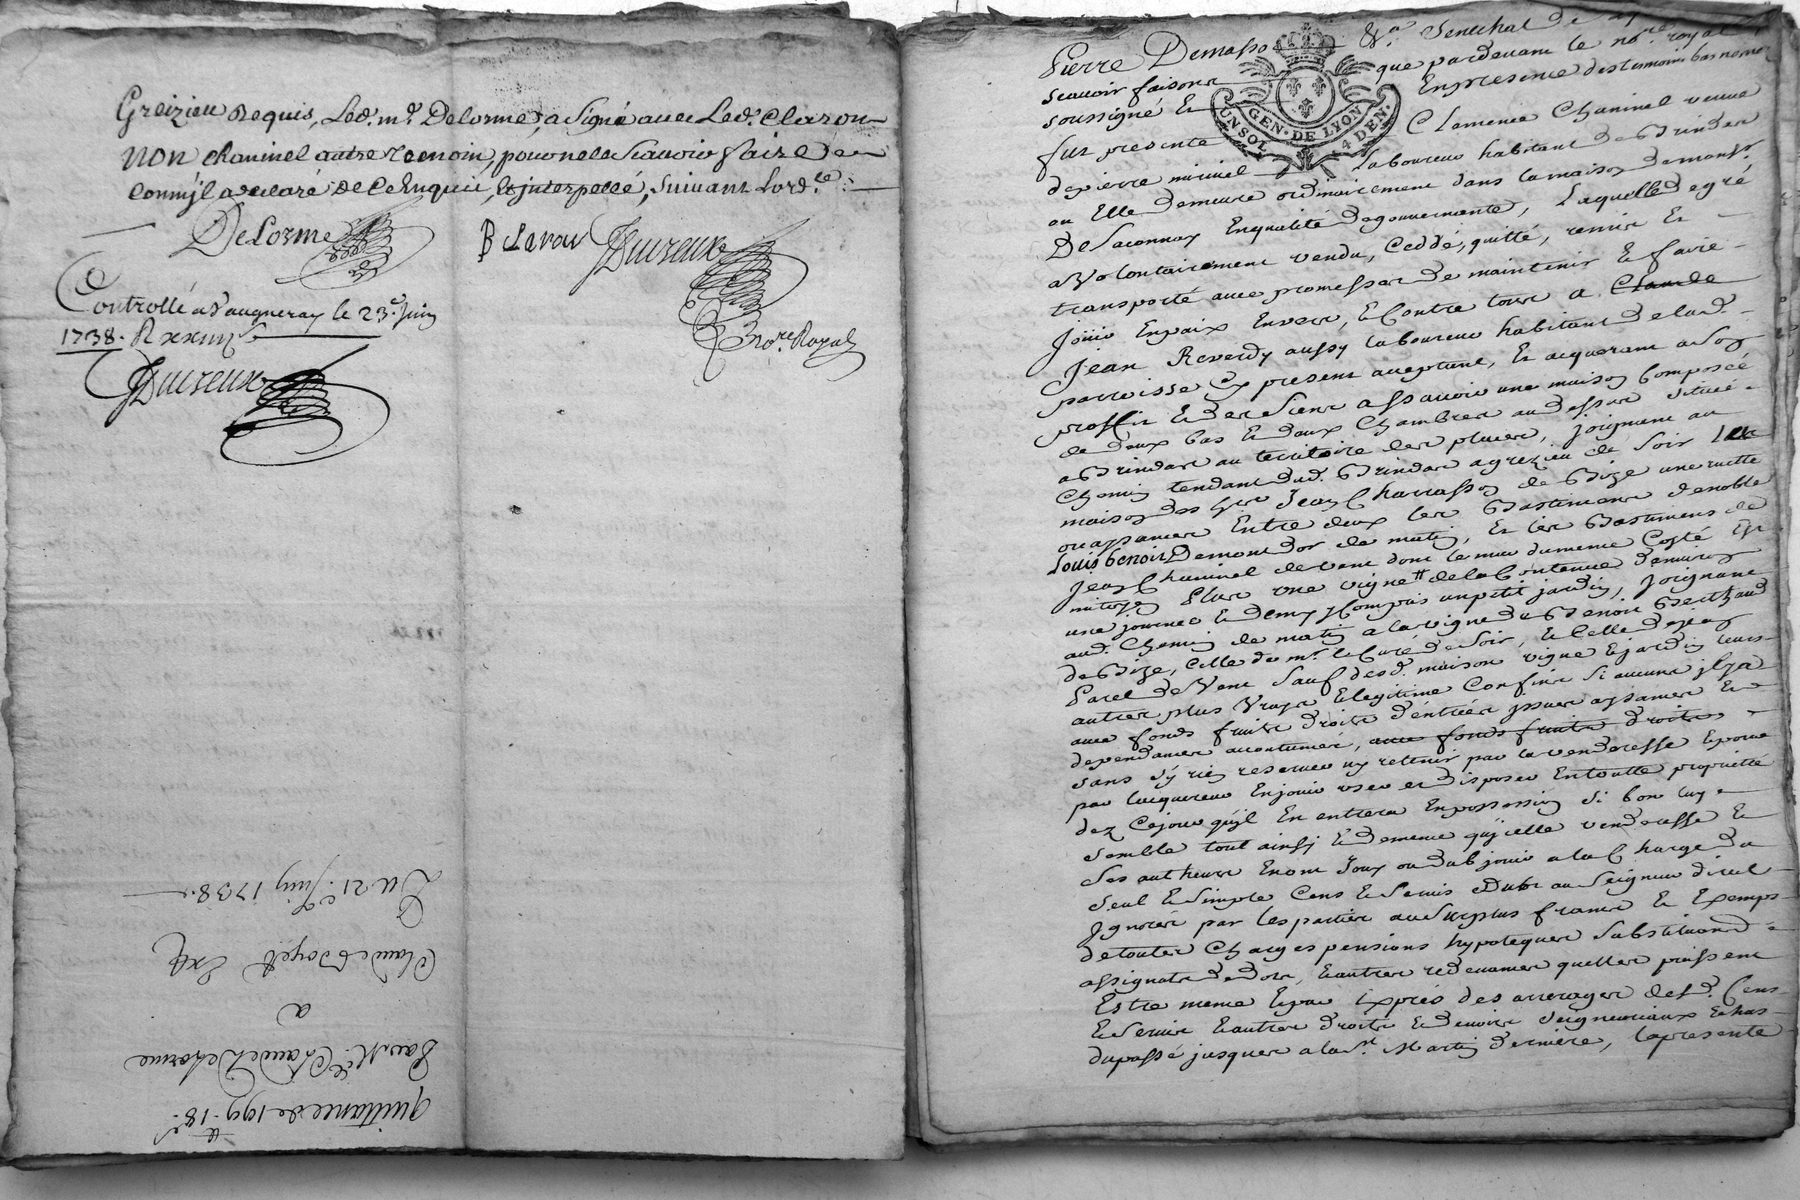 Greizieu Requis, Led. mr. Delorme, a signé avec Led. Claron
non chaninel autre temoin, pour ne la scavoir faire de
comm'jl a declaré de ce Enquis, & jnterpellé, suivant Lord.ce
DeLorme B Clavou Ducreux
no.re Royal
Controllé a Vaugneray le 23.e Juin
1738. R xxiiij s
Ducreux
quittance de 199.tt 18.s
Par M.e Claude Delorme
a
Claude Boyet Exq
Du 21.e Juin 1738.
Pierre Demasso &.a Senechal de
scavoir faisons que pardevant le no.re royal
soussigné Et En presence des temoins bas nommez
GEN. DE LYON
UN SOL 4 DEN.
fut presente Clemence Chaninel veuve
de pierre miniel Laboureur habitant de Brindas
ou Elle demeure ordinairement dans la maison de mons.r
De Laconnay En qualité de gouvernante, Laquelle de gré
a volontairement vendu, Ceddé, quitté, remis Et
transporté avec promesse de maintenir & faire
Jouir En paix Envers, & Contre tous a Claude
Jean Reverdy aussy laboureur habitant de lad.
parroisse Cy present acceptant, Et acquerant a son
proffit & des siens assavoir une maison Composée
de deux bas & deux Chambres au dessus située
a Brindas au territoire des places, joignant au
Chemin tendant dud. Brindas a grezieu de soir Les
maison des hers Jean Charrasson de Bize une ruette
ou aysances Entre deux les Bastiments de noble
Louis benoit Demontdor de matin, Et les Bastimens de
Jean Chaninel de vent dont le mur du meme Costé Est
mitoyen Plus une vigne de la Contenue d'environ
une journée & demy y Compris un petit jardin, Joignant
aud. Chemin de matin a la vigne de Benoit Berthaud
de Bize, Celle de mr. le Curé de soir, & Celle de jean
Parel de Vent sauf desd. maison vigne & jardin leurs
autres plus Vrays & legitime Confins si aucuns jl y a
avec fonds fruits droits d'éntrées jssues aysances &
dependances accoutumées, avec fonds fruits droits
sans s'y rien reserver ny retenir par la venderesse & pour
par lacquereur En jouir user et disposer En toutte propriété
dez Cejour qu'jl En entrera En possession si bon luy
semble tout ainsy & de meme qu'jcelle venderesse &
ses autheurs En ont Jouy ou dub jouir a la Charge du
seul & simple Cens & servis Dubs au seigneur direct
Jgnorés par les parties au surplus francs & Exempts
de toutes Charges pensions hypoteques substitutions
assignats de dots, & autres redevances quelles puissent
Estre meme & par Exprés des arrerages desd. Cens
& servis & autres droits & devoirs seigneuriaux Echus
du passé jusques a la St. Martin derniére, la presente